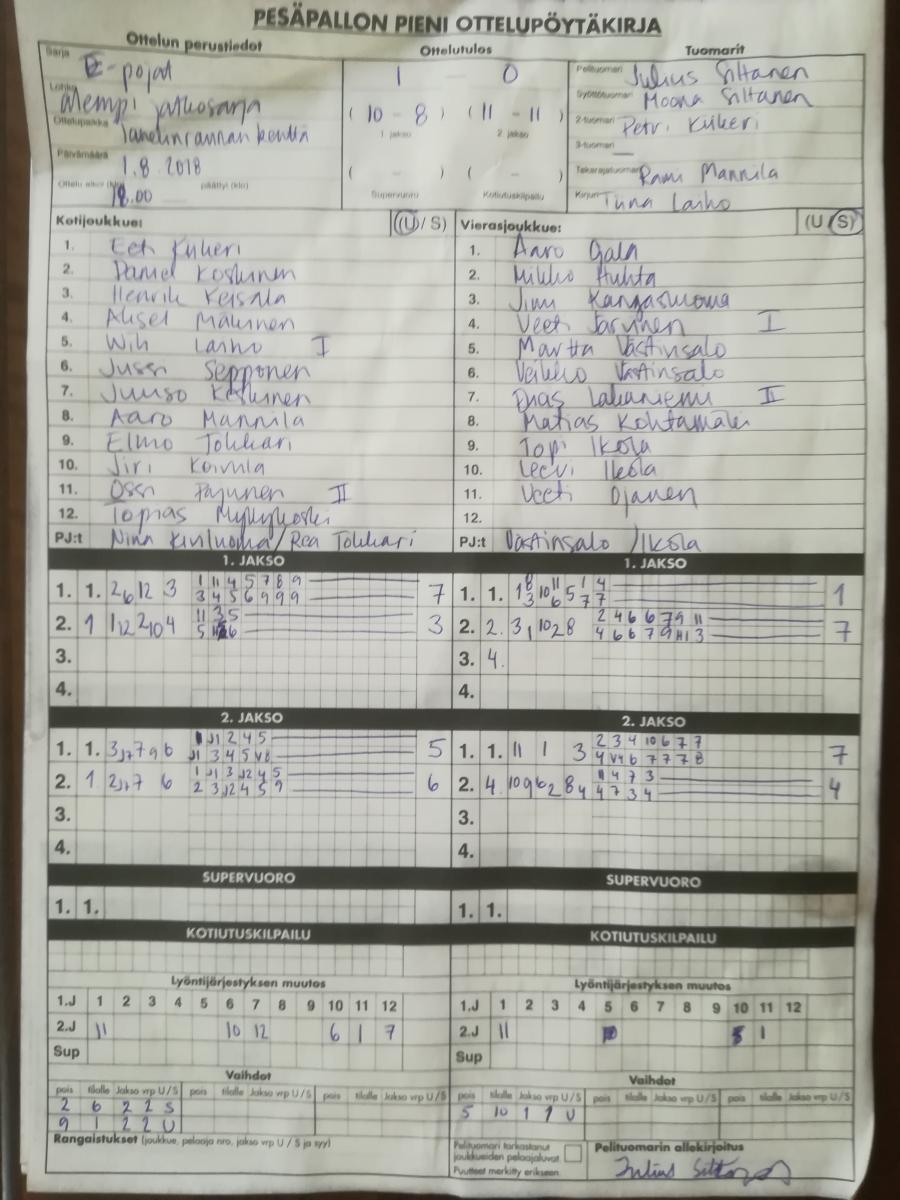 PESÄPALLON PIENI OTTELUPÖYTÄKIRJA
Ottelun perustiedot Ottelutulos Tuomarit
Sarja E-pojat
1 — 0
Pelituomari Julius Siltanen
Lohko alempi jatkosarja
(10 – 8) (11 – 11)
1. jakso 2. jakso
Syöttötuomari Moona Siltanen
Ottelupaikka Tanelinrannan kenttä
2-tuomari Petri Kiikeri
3-tuomari —
Päivämäärä 1.8.2018
( – ) ( – )
Supervuoro Kotiutuskilpailu
Takarajatuomari Rami Mannila
Ottelu alkoi (klo) 18.00 päättyi (klo)
Kirjuri Tiina Lariho
Kotijoukkue: (U / S) Vierasjoukkue: (U / S)
1. Eeti Kiikeri 1. Aaro Gala
2. Daniel Koskinen 2. Mikko Huhta
3. Henrik Keisala 3. Jimi Kangasluoma
4. Aksel Mäkinen 4. Veeti Järvinen I
5. Wili Lariho I 5. Martta Västinsalo
6. Jussi Sepponen 6. Veikko Västinsalo
7. Juuso Koskinen 7. Lakaniemi II
8. Aaro Mannila 8. Matias Kohtamäki
9. Elmo Tokkari 9. Topi Ikola
10. Jiri Koivula 10. Leevi Ikola
11. Ossi Pajunen II 11. Veeti Ojanen
12. Topias Myllykoski 12.
PJ:t Niina / Rea Tokkari PJ:t Västinsalo / Ikola
1. JAKSO 1. JAKSO
1. 1. 2 6 12 3 1 11 4 5 7 8 9 7
3 4 5 6 9 9 9
1. 1. 1
2. 1 1 12 2 10 4 11 3 5 3
2. 2. 3 1 10 2 8 2 4 6 6 7 9 11 7
3. 3. 4.
4. 4.
2. JAKSO 2. JAKSO
1. 1. 5
1. 1. 11 1 3 2 3 4 10 6 7 7 7
2. 1 6
2. 4. 10 9 6 2 8 4 11 4 7 3 4
4 7 3 4
3. 3.
4. 4.
SUPERVUORO SUPERVUORO
1. 1. 1. 1.
KOTIUTUSKILPAILU KOTIUTUSKILPAILU
Lyöntijärjestyksen muutos Lyöntijärjestyksen muutos
1.J 1 2 3 4 5 6 7 8 9 10 11 12 1.J 1 2 3 4 5 6 7 8 9 10 11 12
2.J 11 10 12 6 1 7 2.J 11 1
Sup Sup
Vaihdot Vaihdot
pois tilalle Jakso vrp U/S pois tilalle Jakso vrp U/S pois tilalle Jakso vrp U/S pois tilalle Jakso vrp U/S pois tilalle Jakso vrp U/S pois tilalle Jakso vrp U/S
2 6 2 2 S 5 10 1 1 U
9 1 2 2 U
Rangaistukset (joukkue, pelaaja nro, jakso vrp U / S ja syy)
Pelituomari tarkastanut
joukkueiden pelaajaluvat.
Puutteet merkitty erikseen.
Pelituomarin allekirjoitus